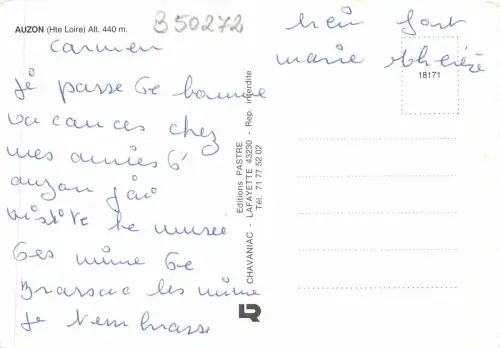 AUZON (Hte Loire) Alt. 440 m.
B50272
Carmen
je passe De bonne
vacances chez
mes amies D'
auzon j'ai
visite le musee
Des mine De
Brassac les mine
je t'embrasse
bien fort
marie
18171
Editions PASTRE
CHAVANIAC - LAFAYETTE 43230 - Rep. interdite
Tél. 71 77 52 02